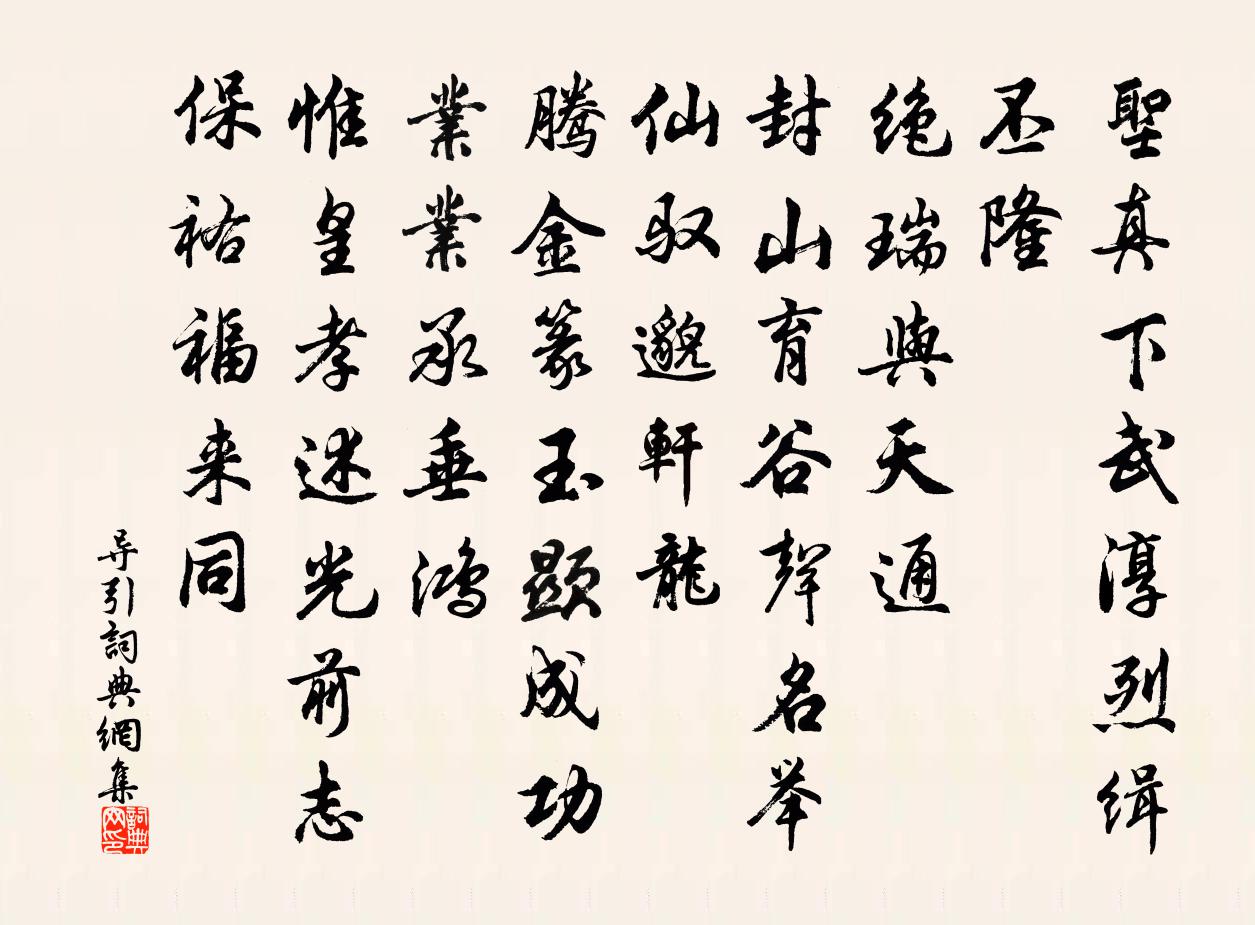 聖真下武淳烈缉
丕隆
绝瑞與天通
封山育谷聲名举
仙驭邈軒龍
腾金篆玉顯成功
業業承垂鸿
惟皇孝述光前志
保祐福来同
导引詞典網集
詞典网印